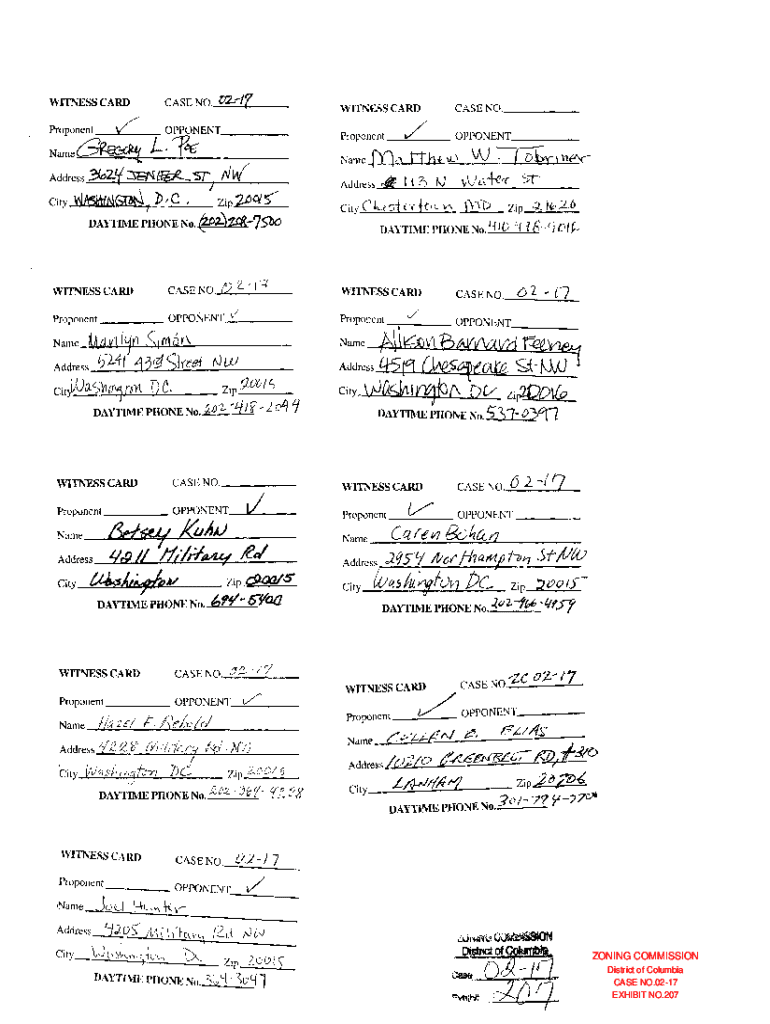 WITNESS CARD CASE NO. 02-17
Proponent ✓ OPPONENT
Name GREGORY L. POE
Address 3624 JENIFER ST, NW
City WASHINGTON, D.C. Zip 20015
DAYTIME PHONE No. (202) 208-7500
WITNESS CARD CASE NO.
Proponent ✓ OPPONENT
Name Matthew W. Tobriner
Address 113 N Water St
City Chestertown MD Zip 21620
DAYTIME PHONE No. 410
WITNESS CARD CASE NO. 02-17
Proponent OPPONENT ✓
Name Marilyn Simón
Address 5241 43rd Street NW
City Washington DC. Zip 20015
DAYTIME PHONE No. 202-418-2044
WITNESS CARD CASE NO. 02-17
Proponent ✓ OPPONENT
Name Alison Barnard Feeney
Address 4519 Chesapeake St NW
City Washington DC Zip 20016
DAYTIME PHONE No. 537-0397
WITNESS CARD CASE NO.
Proponent OPPONENT ✓
Name Betsey Kuhn
Address 4211 Military Rd
City Washington Zip 20015
DAYTIME PHONE No. 694-5400
WITNESS CARD CASE NO. 02-17
Proponent ✓ OPPONENT
Name Caren Bohan
Address 2954 Northampton St NW
City Washington DC Zip 20015
DAYTIME PHONE No. 202-966-4959
WITNESS CARD CASE NO. 02-17
Proponent OPPONENT ✓
Name Hazel F. Rebold
Address 4228 Military Rd. NW
City Washington DC Zip 20015
DAYTIME PHONE No. 202-364-
WITNESS CARD CASE NO. ZC 02-17
Proponent ✓ OPPONENT
Name CULLEN E. ELIAS
Address 10210 GREENBELT RD, #310
City LANHAM Zip 20706
DAYTIME PHONE No. 301-794-
WITNESS CARD CASE NO. 02-17
Proponent OPPONENT ✓
Name Joel Hunter
Address 4205 Military Rd NW
City Washington Zip 20015
DAYTIME PHONE No. 364-3047
ZONING COMMISSION
District of Columbia
Case 02-17
Exhibit 207
ZONING COMMISSION
District of Columbia
CASE NO.02-17
EXHIBIT NO.207